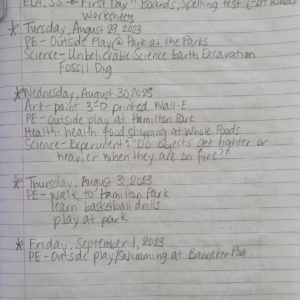 ELA, SS → "First Day" Boards, Spelling Test
Worksheets
* Tuesday, August 29, 2023
PE - Outside Play @ Park at the Parks
Science - Unbelievable Science Earth Excavation
Fossil Dig
* Wednesday, August 30, 2023
Art - paint 3-D printed Wall-E
PE - outside play at Hamilton Park
Health - health food shopping at Whole Foods
Science - Experiment: "Do objects get lighter or
heavier when they are on fire?"
* Thursday, August 31, 2023
PE - walk to Hamilton Park
learn basketball drills
play at park
* Friday, September 1, 2023
PE - Outside play/swimming at Banneker